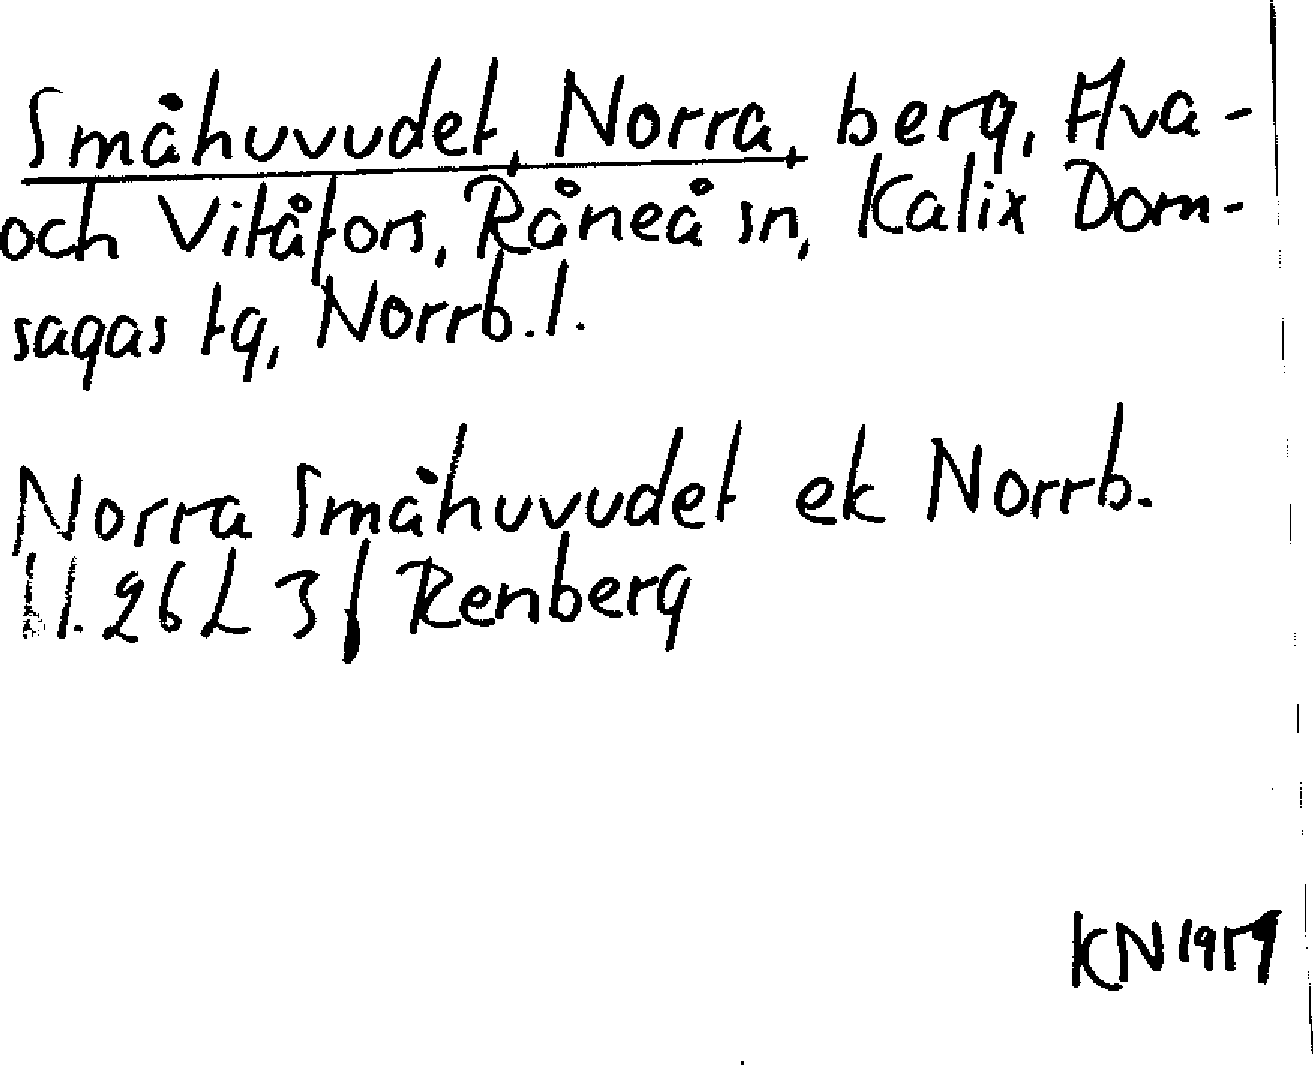 Småhuvudet, Norra, berg, Ava-
och Vitåfors, Råneå sn, Kalix Dom-
sagas tg, Norrb. l.
Norra Småhuvudet ek Norrb.
26 L 3 f Renberg
KN